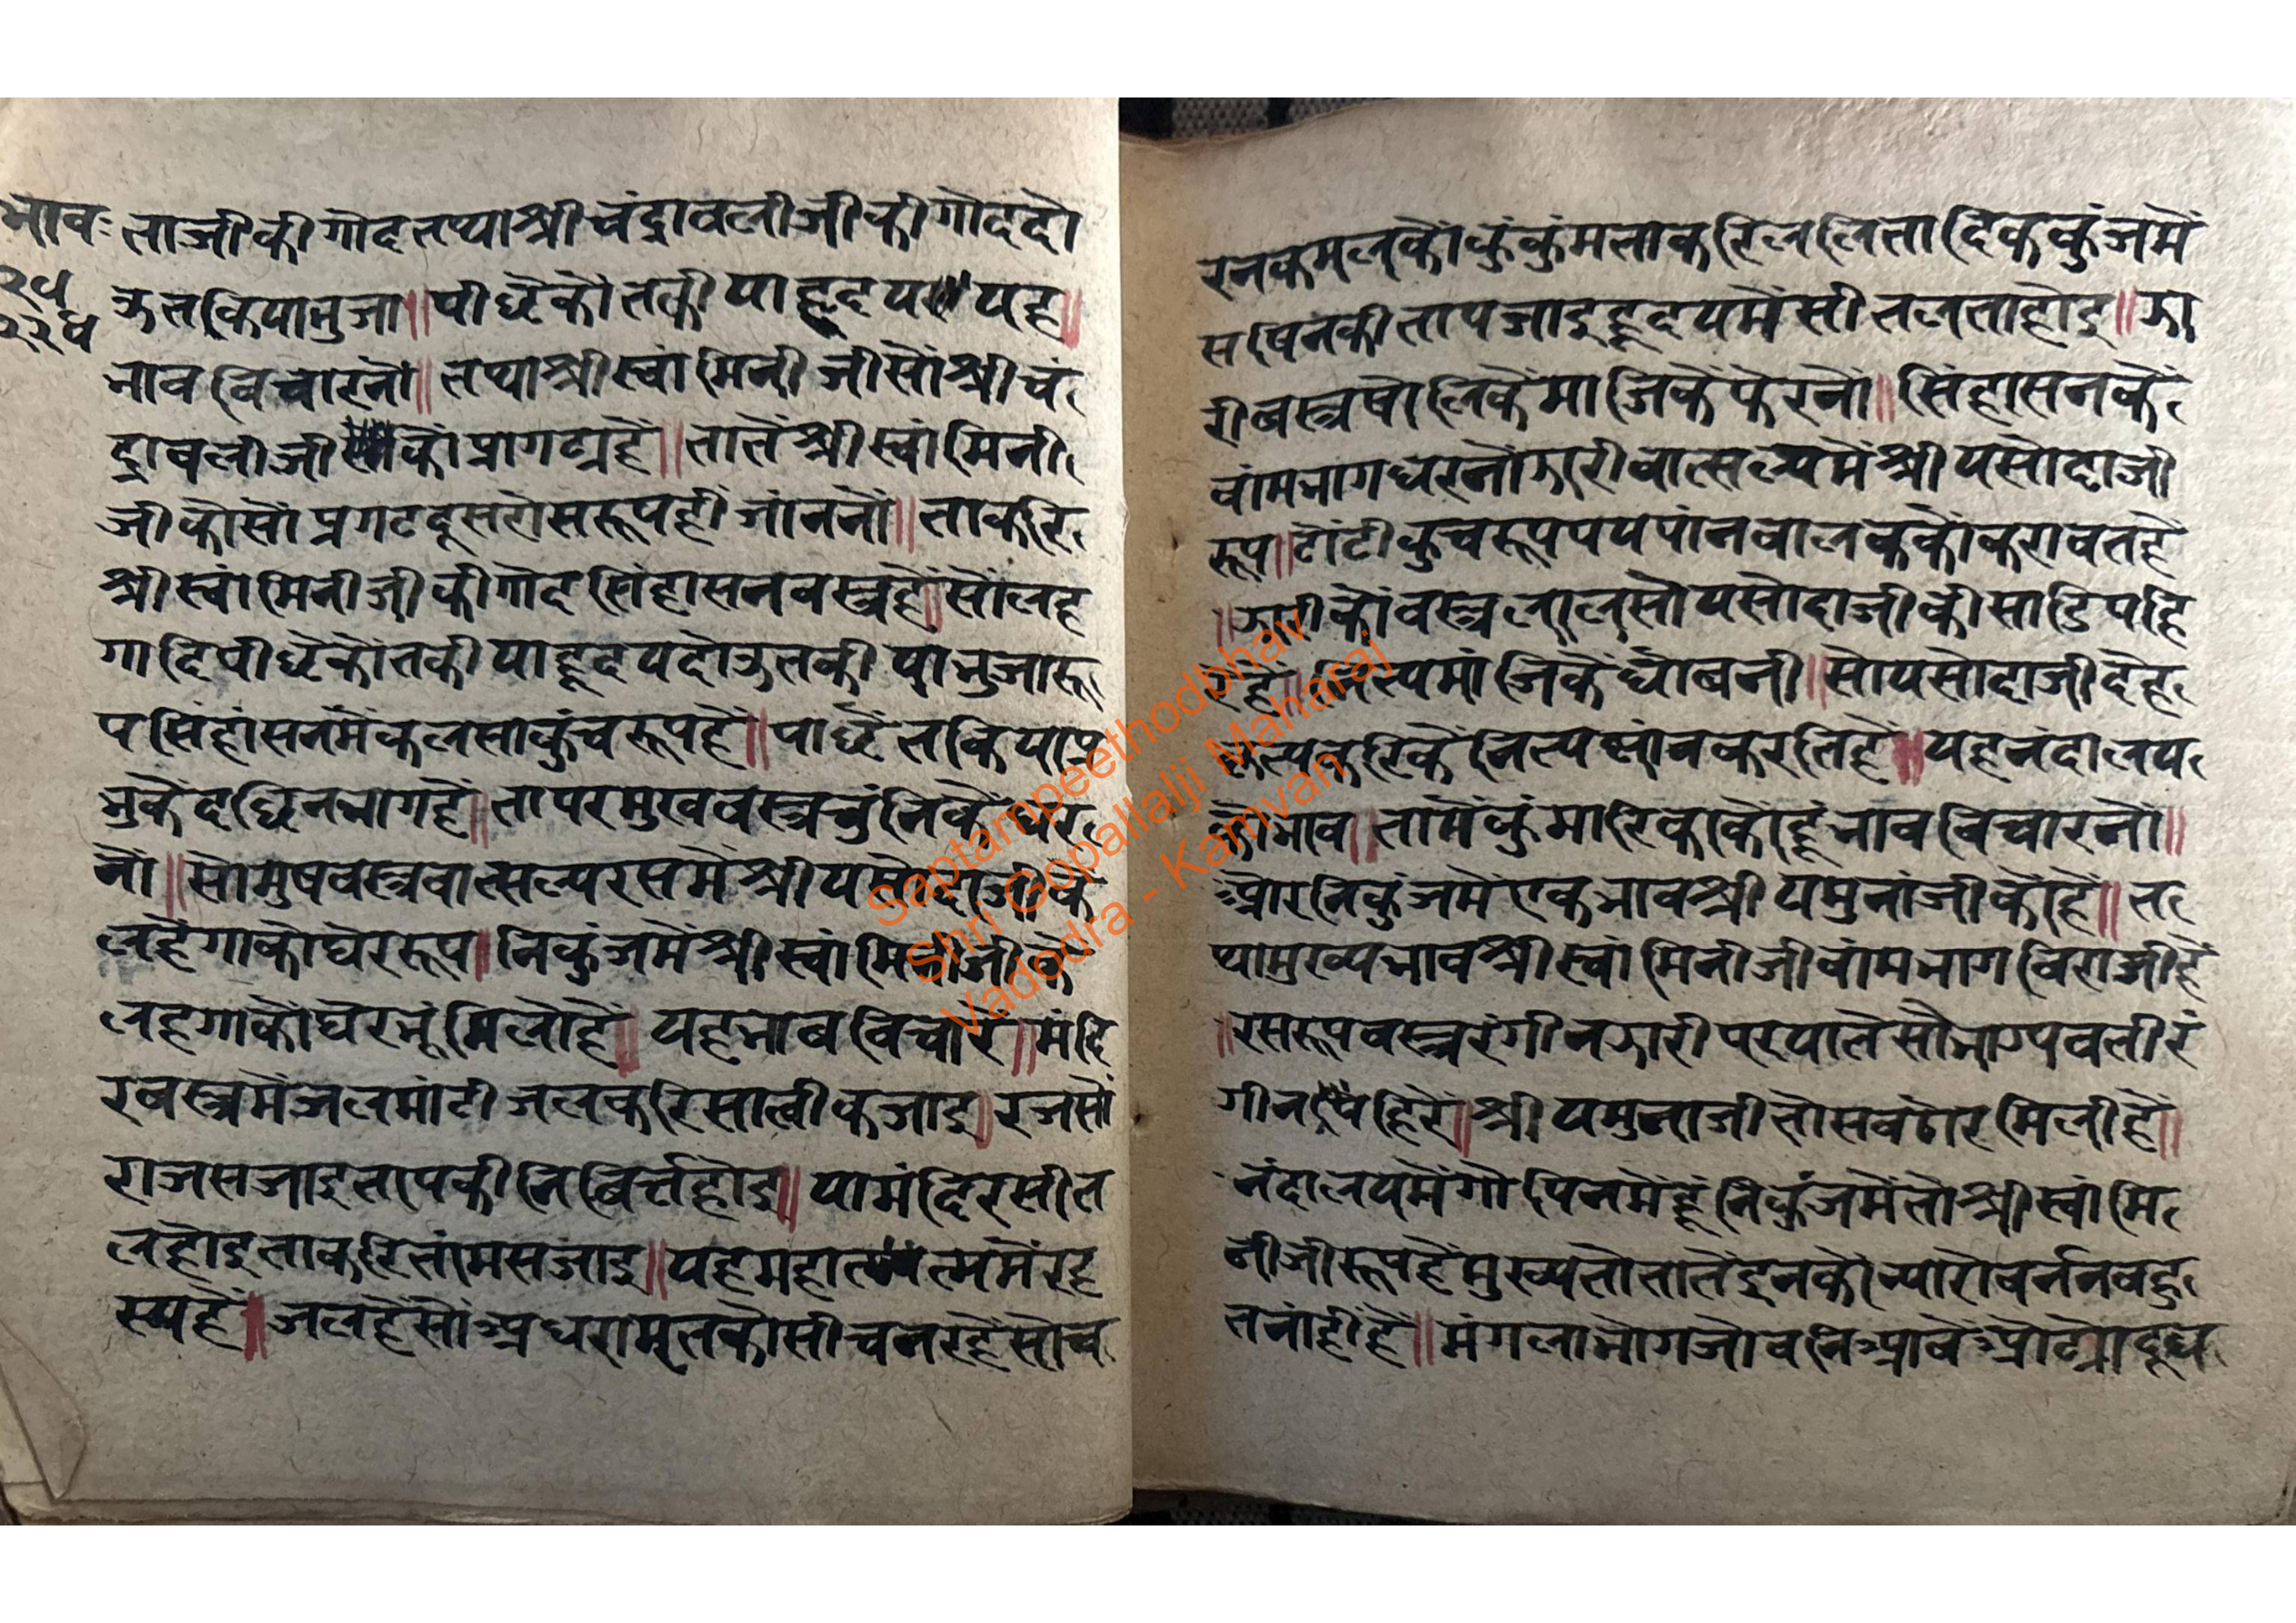 भावः
२५
२२ध
ताजीकी गोद तथा श्रीचंद्रावलीजी की गोद दो
ऊ तकिया भुजा॥ पीछैकौ तकीया ह्रदय॥ यह॥
भाव विचारनों॥ तथा श्रीस्वांमिनीजीसों श्रीचं
द्रावलीजी कों प्रागट्य है॥ तातें श्रीस्वांमिनी
जीकौसौं प्रगट दूसरो सरूप ही जांननों॥ ताकरि
श्रीस्वांमिनीजीकी गोद सिंहासन वस्त्र है॥ सों लह
गादि पीछैकौ तकीया ह्रदय दोऊ तकीया भुजा रू
प सिंहांसनमें कलसा कुंच रूप है॥ पाछैं तकिया प्र
भुकें दछिन भाग है॥ तापर मुख वस्त्र चुंनिकें धर
नों॥ सो मुष वस्त्र वात्सल्य रसमें श्रीयसोदाजीके
लहैंगाकौ घेर रूप॥ निकुंजमें श्रीस्वांमिनीजीके
लहगाकौं घेर भूंमिलौ है॥ यह भाव विचारें॥ मंदि
र वस्त्रमें जल मांटी जल करि सात्वीक जाइ॥ रजसों
राजस जाइ तापकी निब्रिर्त्त होइ॥ या मंदिर सीत
ल होइ ताकरि तांमस जाइ॥ यह महात्मत्ममें रह
स्य है॥ जल हैं सों अधरामृतकौ सीचन रहैं सो च
रन कमलकौं कुंकुंमताकरि ललितादिक कुंजमें
सषिनकी ताप जाइ ह्रदयमें सीतलता होइ॥ झा
री बस्त्र षोलिकें माजिकें फेरनों॥ सिंहासनकें
वांम भाग धरनों झारी वात्सल्यमें श्रीयसोदाजी
रूप॥ टोंटी कुच रूप पय पांन बालककों करावत है
॥ झारीकों वस्त्र लाल सो यसोदाजीकी साडि पहि
रें है॥ नित्य मांजिकें धोवनी॥ सो यसोदाजी देह
कृत्य करिकें नित्य स्नांन करति है॥ यह नंदालय
कौ भाव॥ तामें कुंमारिकाकौ हूं भाव विचारनों॥
और निकुंजमें एक भाव श्रीयमुनांजीकों है॥ त
था मुख्य भाव श्रीस्वांमिनीजी वांम भाग विराजी है
॥ रस रूप वस्त्र रंगीन झारी पर याते सौभाग्यवली रं
गीन पहिरें॥ श्रीयमुनाजी तो सब ठोर मिली है॥
नंदालयमें गोपिनमें हूं निकुंजमें तो श्रीस्वांमि
नीजी रूप है मुख्य तो तातें इनको न्यारो वर्नन बहु
त नांही है॥ मंगला भोग जो वनि आवें ओट्यो दूध
Saptampeethodbhav
Shri Gopallalji Maharaj
Vadodra - Kamvan